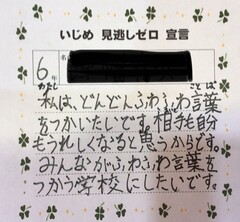 いじめ 見逃しゼロ 宣言
6年 名
私は、どんどんふわふわ言葉
をつかいたいです。相手も自分
もうれしくなると思うからです。
みんながふわふわ言葉を
つかう学校にしたいです。